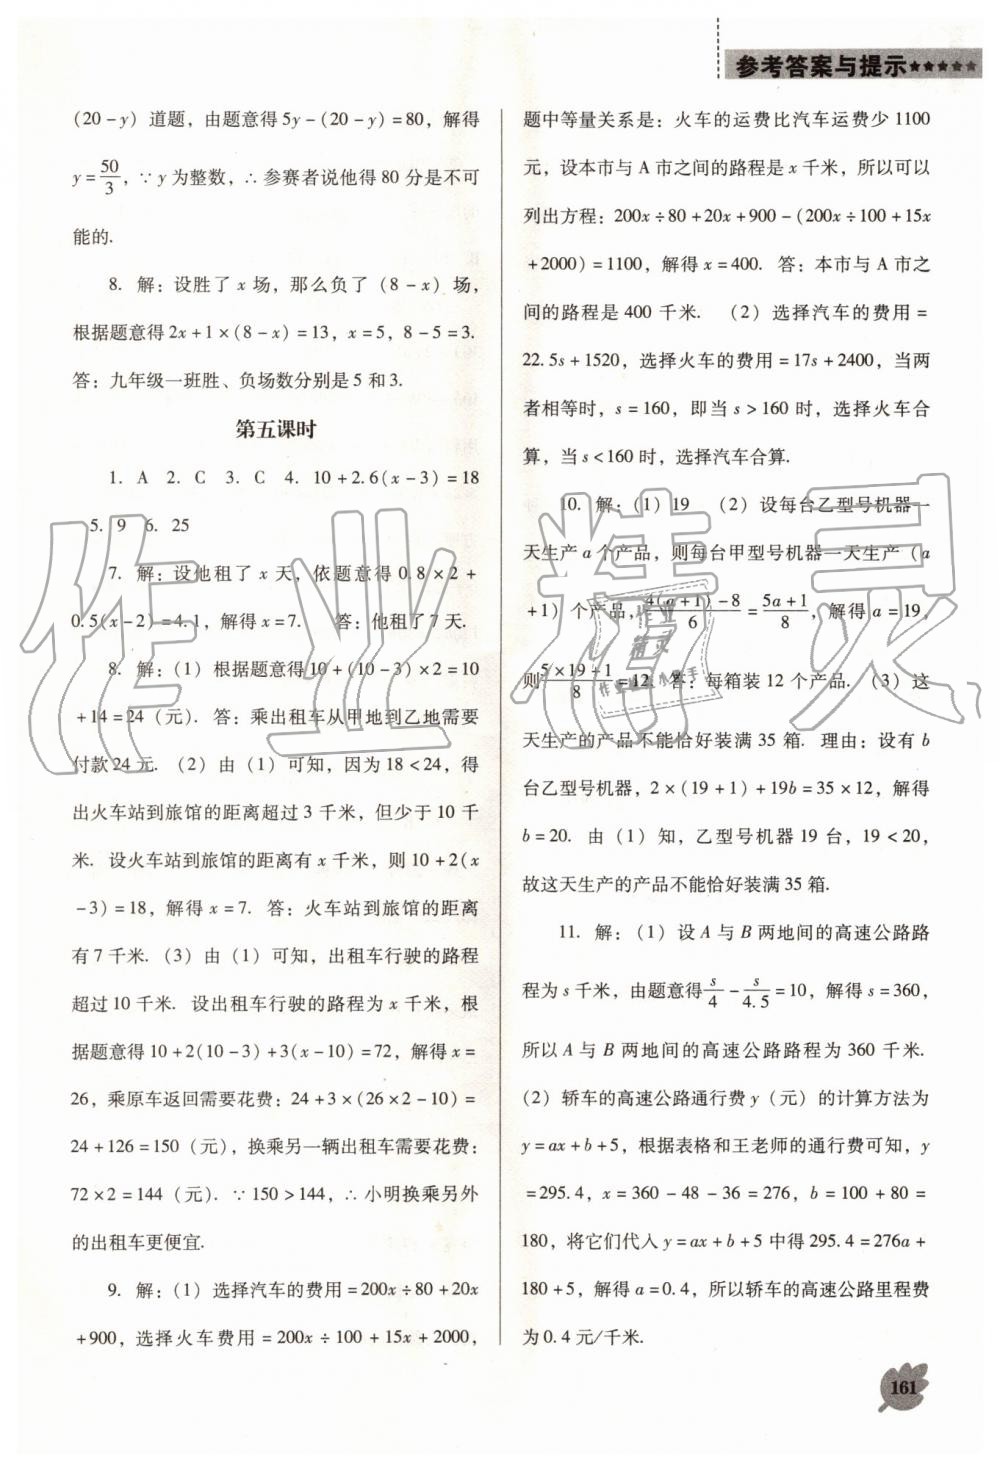 参考答案与提示★★★★★
(20-y) 道题，由题意得5y-(20-y)=80，解得
y=50/3，∵y为整数，∴参赛者说他得80分是不可
能的.
8. 解：设胜了x场，那么负了(8-x)场，
根据题意得2x+1×(8-x)=13，x=5，8-5=3.
答：九年级一班胜、负场数分别是5和3.
第五课时
1. A 2. C 3. C 4. 10+2.6(x-3)=18
5. 9 6. 25
7. 解：设他租了x天，依题意得0.8×2+
0.5(x-2)=4.1，解得x=7. 答：他租了7天.
8. 解：(1) 根据题意得10+(10-3)×2=10
+14=24（元）. 答：乘出租车从甲地到乙地需要
付款24元. (2) 由(1)可知，因为18<24，得
出火车站到旅馆的距离超过3千米，但少于10千
米. 设火车站到旅馆的距离有x千米，则10+2(x
-3)=18，解得x=7. 答：火车站到旅馆的距离
有7千米. (3) 由(1)可知，出租车行驶的路程
超过10千米. 设出租车行驶的路程为x千米，根
据题意得10+2(10-3)+3(x-10)=72，解得x=
26，乘原车返回需要花费：24+3×(26×2-10)=
24+126=150（元），换乘另一辆出租车需要花费：
72×2=144（元）. ∵150>144，∴小明换乘另外
的出租车更便宜.
9. 解：(1) 选择汽车的费用=200x÷80+20x
+900，选择火车费用=200x÷100+15x+2000，
题中等量关系是：火车的运费比汽车运费少1100
元，设本市与A市之间的路程是x千米，所以可以
列出方程：200x÷80+20x+900-(200x÷100+15x
+2000)=1100，解得x=400. 答：本市与A市之
间的路程是400千米. (2) 选择汽车的费用=
22.5s+1520，选择火车的费用=17s+2400，当两
者相等时，s=160，即当s>160时，选择火车合
算，当s<160时，选择汽车合算.
10. 解：(1) 19 (2) 设每台乙型号机器一
天生产a个产品，则每台甲型号机器一天生产(a
+1)个产品，4(a+1)-8/6=5a+1/8，解得a=19，
则5×19+1/8=12. 答：每箱装12个产品. (3) 这
天生产的产品不能恰好装满35箱. 理由：设有b
台乙型号机器，2×(19+1)+19b=35×12，解得
b=20. 由(1)知，乙型号机器19台，19<20，
故这天生产的产品不能恰好装满35箱.
11. 解：(1) 设A与B两地间的高速公路路
程为s千米，由题意得s/4-s/4.5=10，解得s=360，
所以A与B两地间的高速公路路程为360千米.
(2) 轿车的高速公路通行费y（元）的计算方法为
y=ax+b+5，根据表格和王老师的通行费可知，y
=295.4，x=360-48-36=276，b=100+80=
180，将它们代入y=ax+b+5中得295.4=276a+
180+5，解得a=0.4，所以轿车的高速公路里程费
为0.4元/千米.
161
作业精灵
作业
精灵